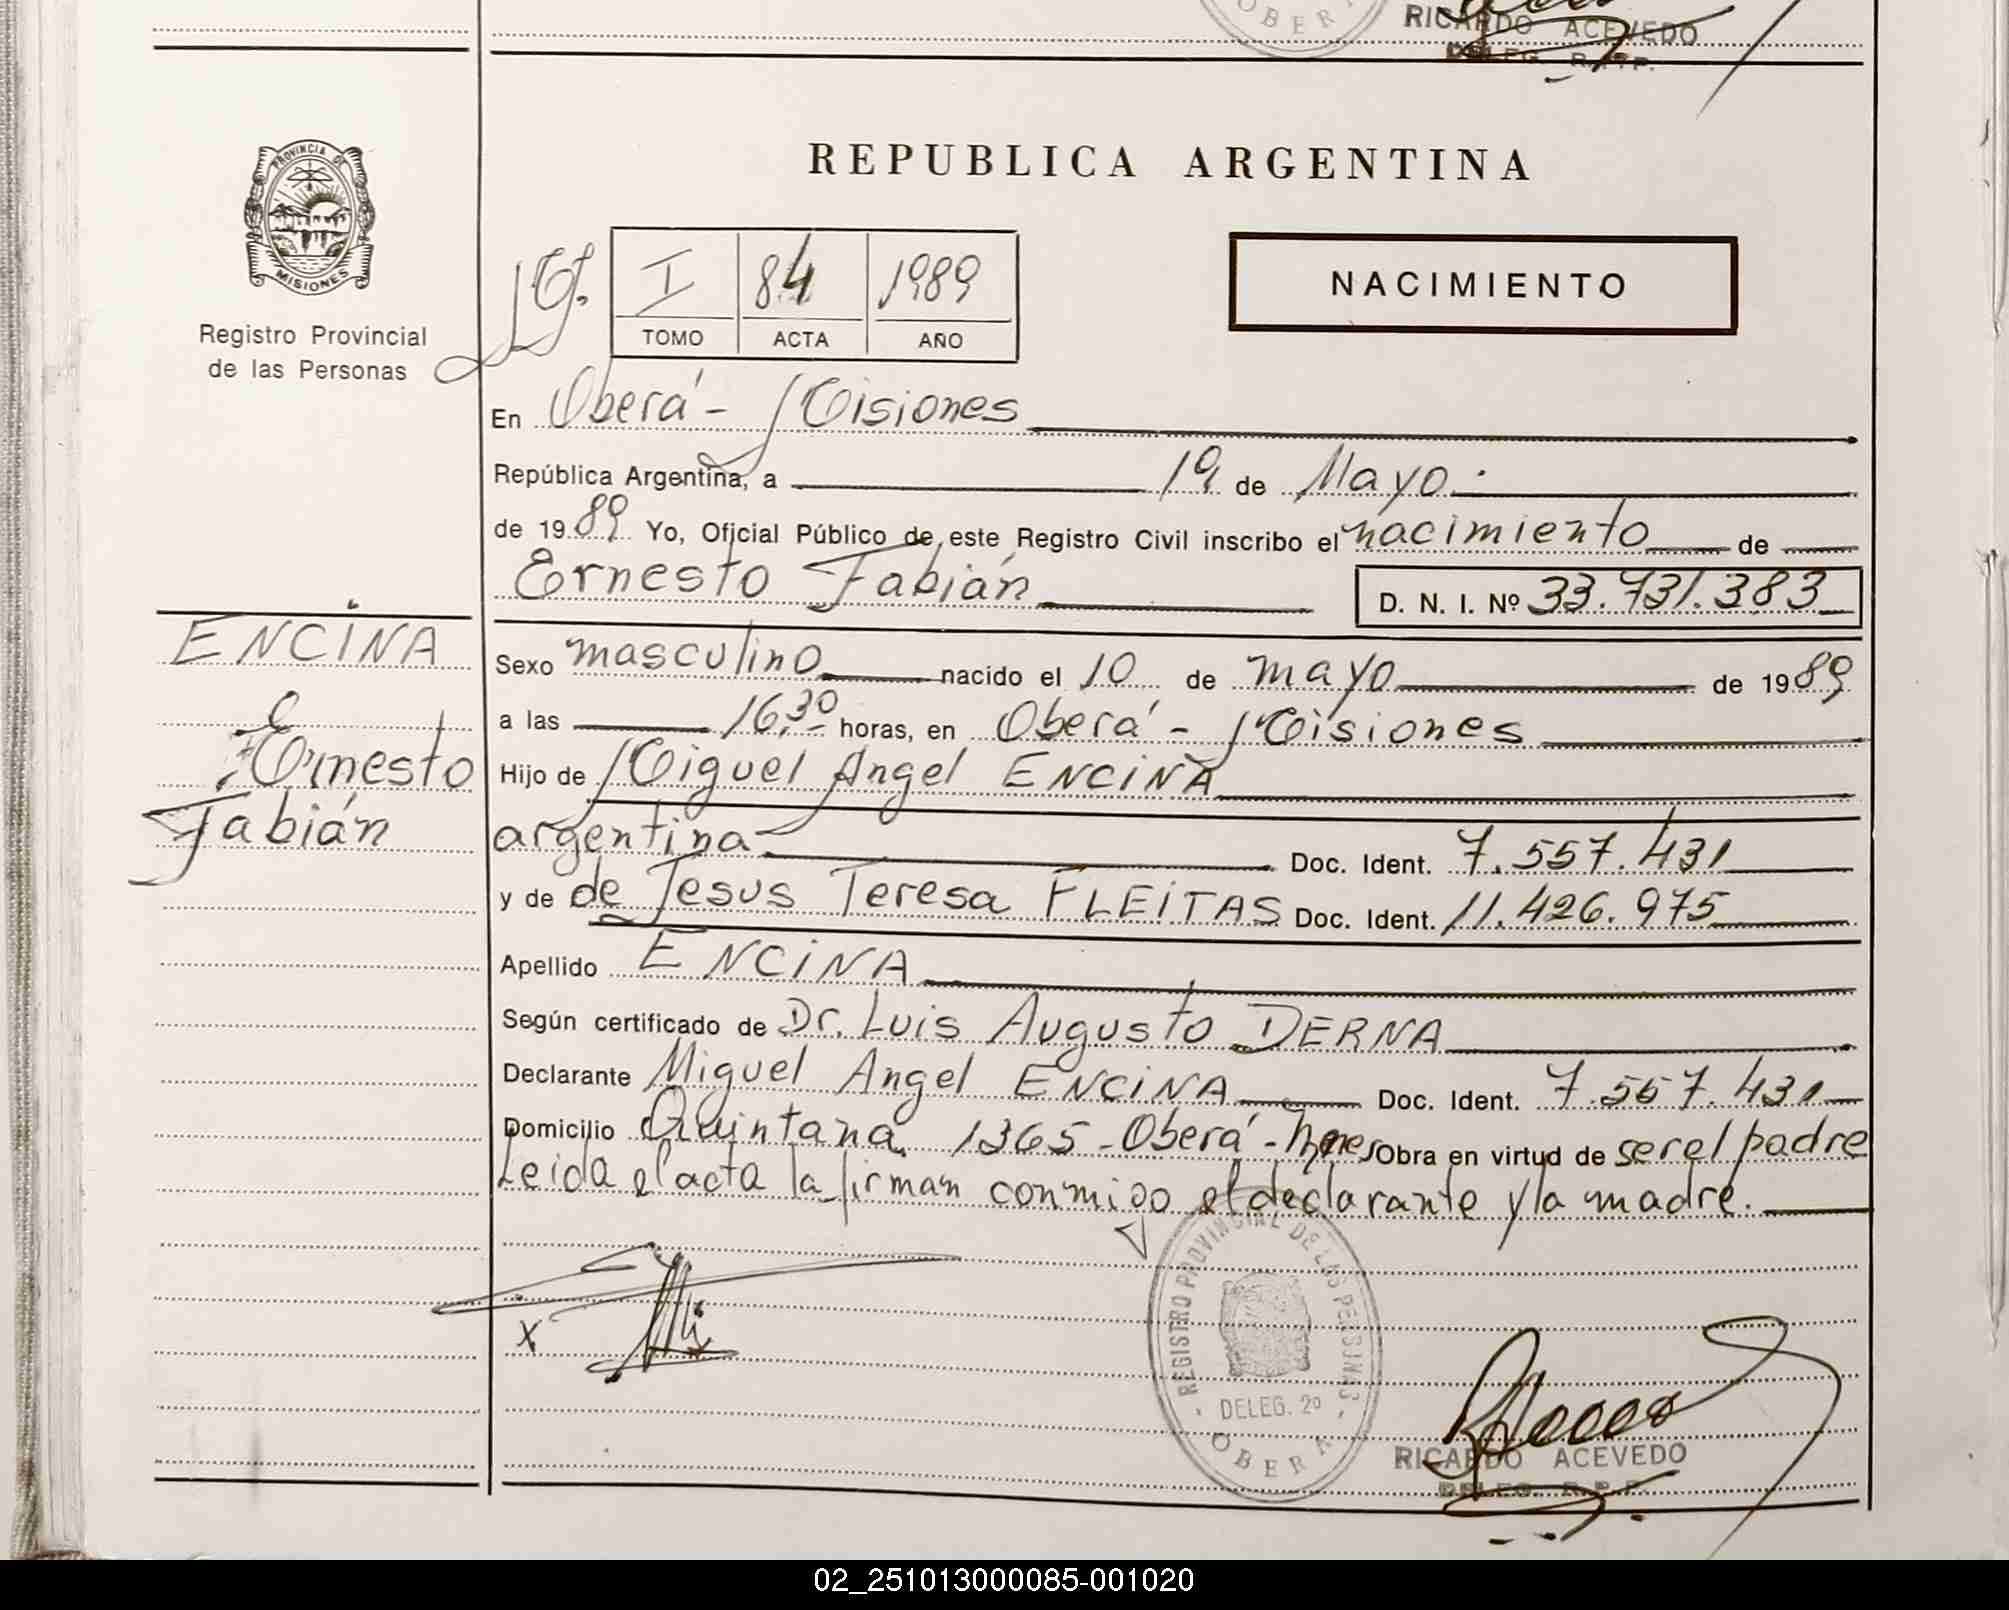 OBERA
RICARDO ACEVEDO
DELEG. R.P.P.
PROVINCIA DE
MISIONES
Registro Provincial
de las Personas
REPUBLICA ARGENTINA
I 84 1989
TOMO ACTA AÑO
NACIMIENTO
En Oberá - Misiones
República Argentina, a 19 de Mayo
de 1989 Yo, Oficial Público de este Registro Civil inscribo el nacimiento de
Ernesto Fabián D. N. I. Nº 33.731.383
ENCINA
Ernesto
Fabián
Sexo masculino nacido el 10 de mayo de 1989
a las 16,30 horas, en Oberá - Misiones
Hijo de Miguel Angel ENCINA
argentina Doc. Ident. 7.557.431
y de de Jesus Teresa FLEITAS Doc. Ident. 11.426.975
Apellido ENCINA
Según certificado de Dr. Luis Augusto DERNA
Declarante Miguel Angel ENCINA Doc. Ident. 7.557.431
Domicilio Quintana 1365 - Oberá - Mnes Obra en virtud de ser el padre
Leida el acta la firman conmigo el declarante y la madre.
x
REGISTRO PROVINCIAL DE LAS PERSONAS
DELEG. 2º
OBERA
RICARDO ACEVEDO
DELEG. R.P.P.
02_251013000085-001020